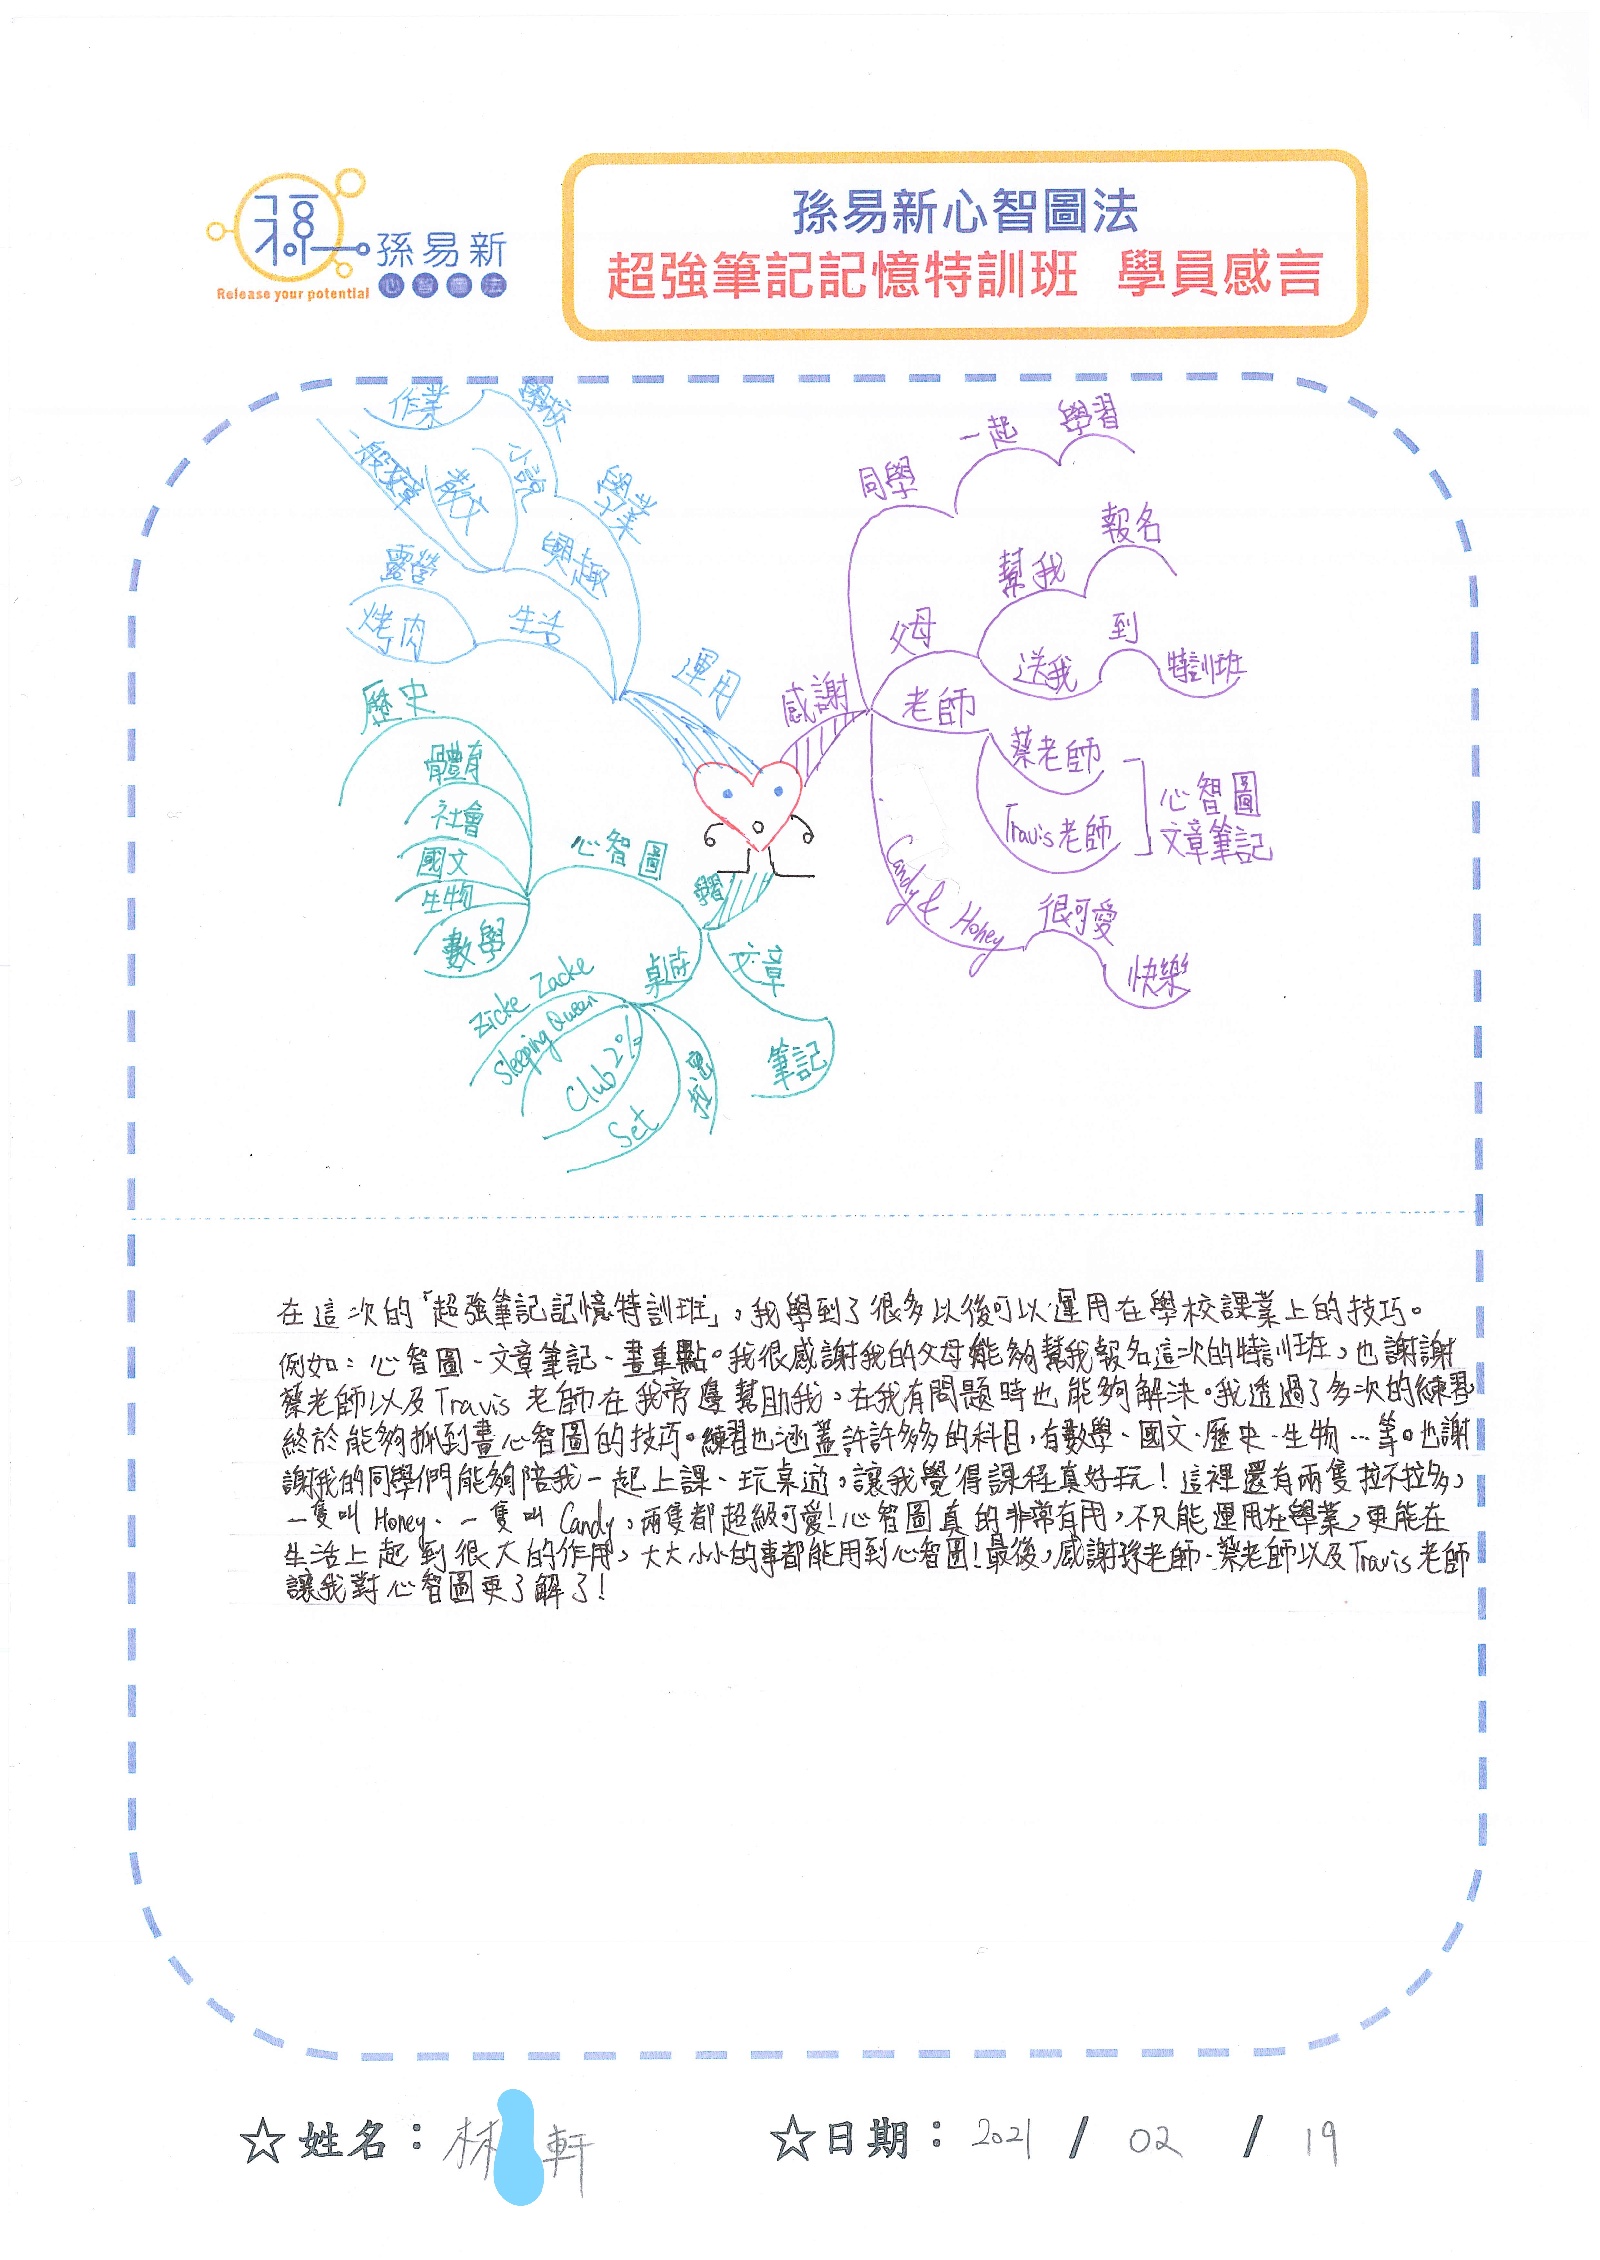 孫易新
心智圖法
Release your potential
孫易新心智圖法
超強筆記記憶特訓班 學員感言
作業
學校
一般文章
散文
小說
學業
興趣
露營
烤肉
生活
運用
歷史
體育
社會
國文
生物
數學
心智圖
學習
桌遊
文章
筆記
Zicke Zacke
Sleeping Queen
Club 2%
Set
感謝
同學
一起
學習
父母
幫我
報名
送我
到
特訓班
老師
蔡老師
Travis老師
心智圖
文章筆記
Candy & Honey
很可愛
快樂
在這次的「超強筆記記憶特訓班」,我學到了很多以後可以運用在學校課業上的技巧。
例如:心智圖、文章筆記、畫重點。我很感謝我的父母能夠幫我報名這次的特訓班,也謝謝
蔡老師以及Travis老師在我旁邊幫助我,在我有問題時也能夠解決。我透過了多次的練習
終於能夠抓到畫心智圖的技巧。練習也涵蓋許許多多的科目,有數學、國文、歷史、生物…等。也謝
謝我的同學們能夠陪我一起上課、玩桌遊,讓我覺得課程真好玩!這裡還有兩隻拉不拉多,
一隻叫Honey、一隻叫Candy,兩隻都超級可愛!心智圖真的非常有用,不只能運用在學業,更能在
生活上起到很大的作用,大大小小的事都能用到心智圖!最後,感謝孫老師、蔡老師以及Travis老師
讓我對心智圖更了解了!
☆姓名:林 軒
☆日期:2021 / 02 / 19